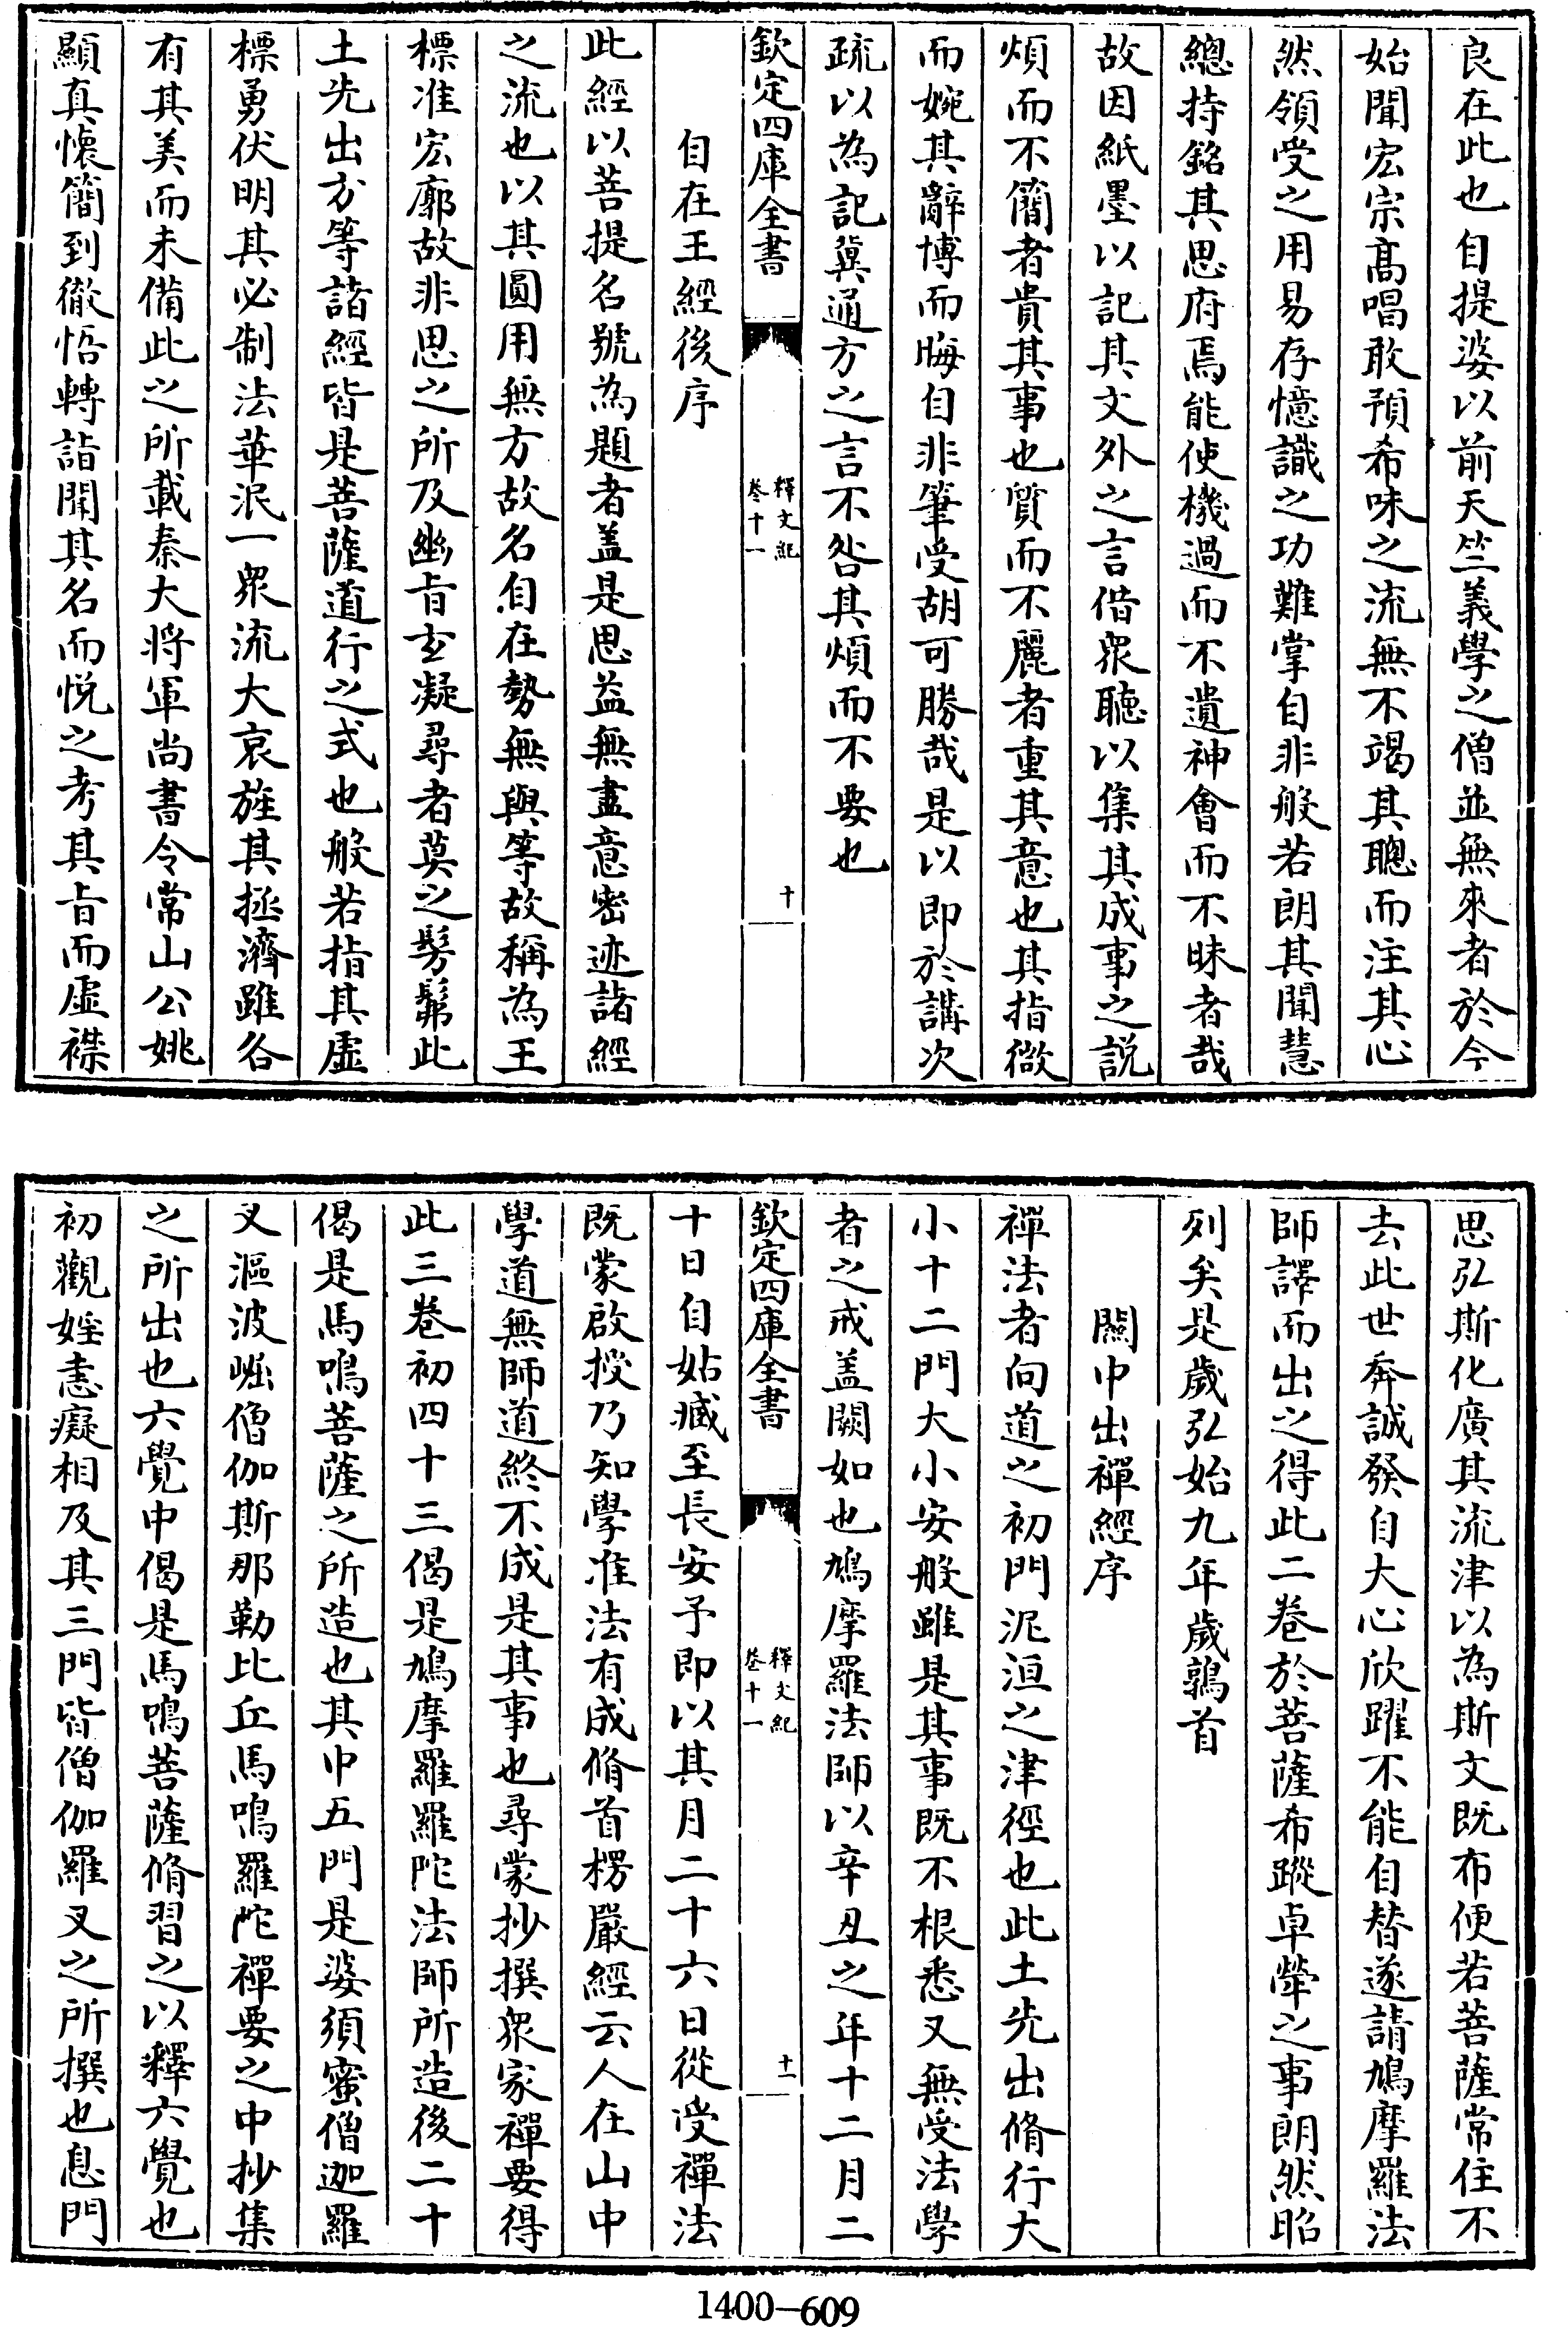 良在此也自提婆以前天竺義學之僧並無來者於今
始聞宏宗髙唱敢預希味之流無不竭其聰而注其心
然領受之用易存憶識之功難掌自非般若朗其聞慧
總持銘其思府焉能使機過而不遺神會而不昧者哉
故因紙墨以記其文外之言借衆聽以集其成事之説
煩而不簡者貴其事也質而不麗者重其意也其指微
而婉其辭博而晦自非筆受胡可勝哉是以即於講次
疏以為記冀通方之言不咎其煩而不要也
欽定四庫全書
釋文紀
卷十一
十
自在王經後序
此經以菩提名號為題者盖是思益無盡意密迹諸經
之流也以其圓用無方故名自在勢無與等故稱為王
標准宏廓故非思之所及幽㫖𤣥凝尋者莫之髣髴此
土先出方等諸經皆是菩薩道行之式也般若指其虚
標勇伏明其必制法華泯一衆流大哀旌其拯濟雖各
有其美而未備此之所載秦大將軍尚書令常山公姚
顯真懷簡到徹悟轉詣聞其名而悦之考其㫖而虚襟
思弘斯化廣其流津以為斯文既布便若菩薩常住不
去此世奔誠發自大心欣躍不能自替遂請鳩摩羅法
師譯而出之得此二卷於菩薩希蹤卓犖之事朗然昭
列矣是歲弘始九年歲鶉首
闗中出禪經序
禪法者向道之初門泥洹之津徑也此土先出脩行大
小十二門大小安般雖是其事既不根悉又無受法學
者之戒盖闕如也鳩摩羅法師以辛丑之年十二月二
欽定四庫全書
釋文紀
卷十一
十一
十日自姑臧至長安予即以其月二十六日從受禪法
既蒙啟授乃知學准法有成脩首楞嚴經云人在山中
學道無師道終不成是其事也尋蒙抄撰衆家禪要得
此三卷初四十三偈是鳩摩羅羅陀法師所造後二十
偈是馬鳴菩薩之所造也其中五門是婆須蜜僧迦羅
叉漚波崛僧伽斯那勒比丘馬鳴羅陀禪要之中抄集
之所出也六覺中偈是馬鳴菩薩脩習之以釋六覺也
初觀婬恚癡相及其三門皆僧伽羅叉之所撰也息門
1400—609